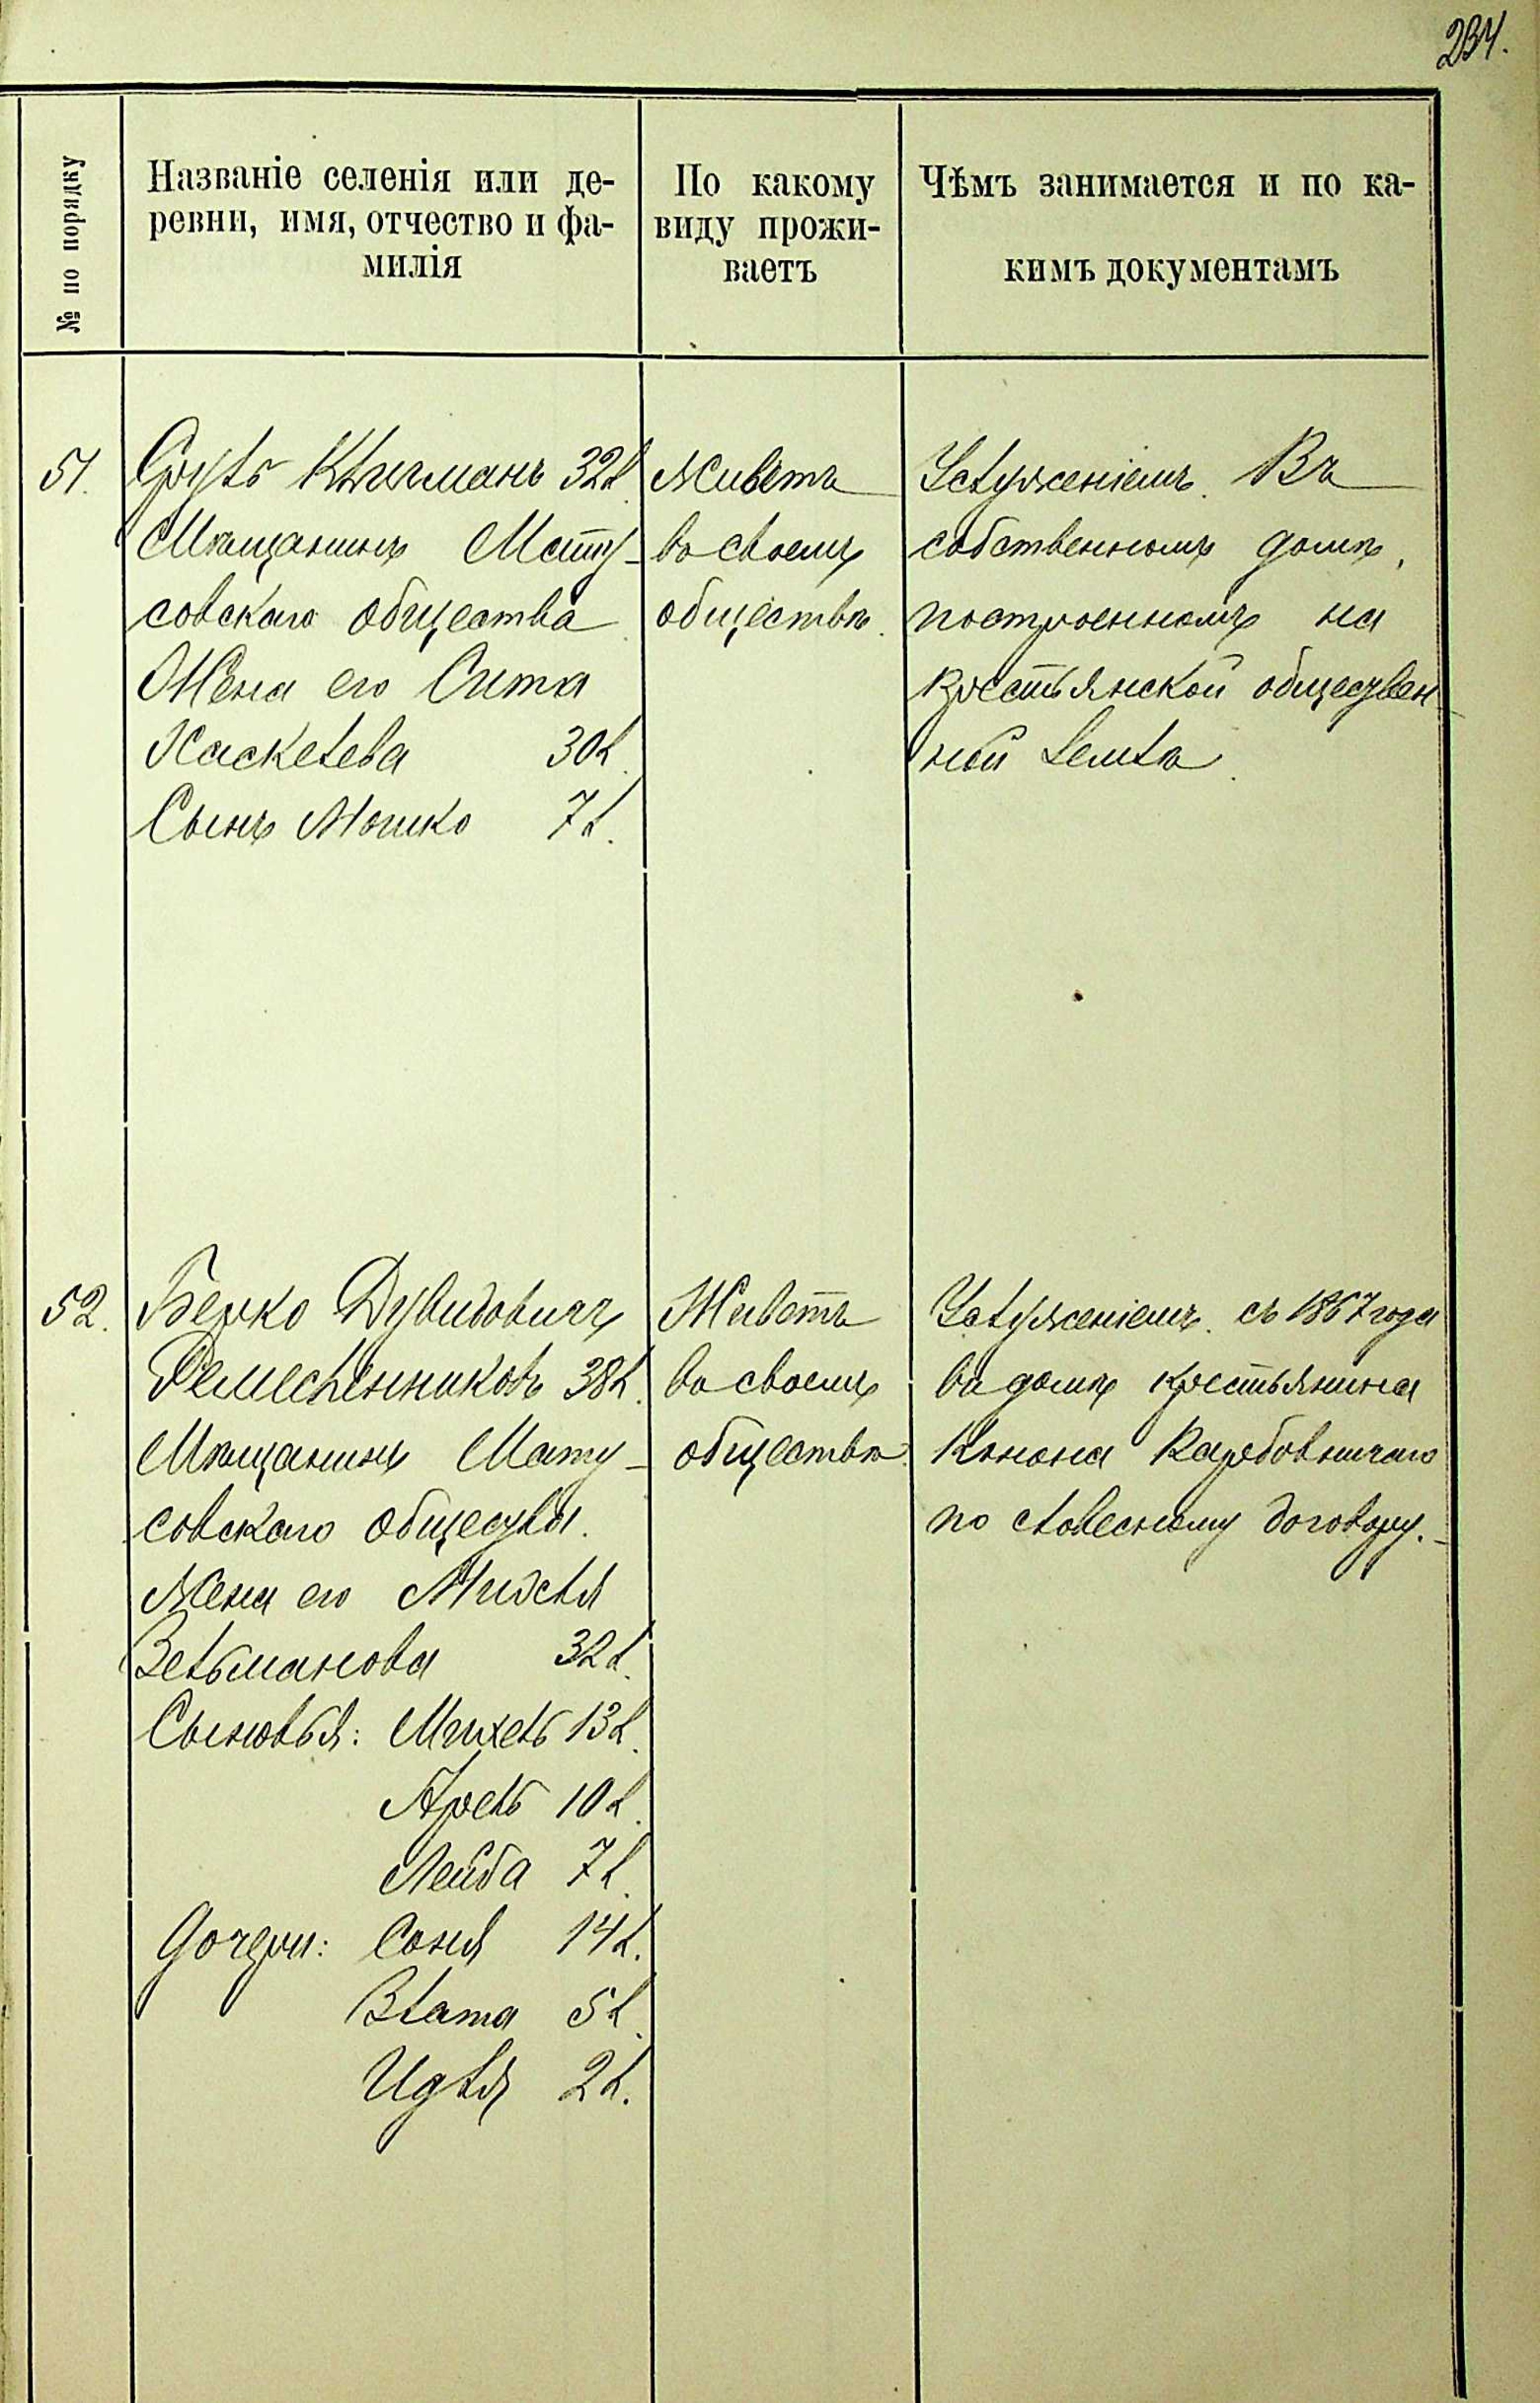 234.
№ по порядку
Названіе селенія или де-
ревни, имя, отчество и фа-
милія
По какому
виду прожи-
ваетъ
Чѣмъ занимается и по ка-
кимъ документамъ
51.
Сруль 32 л.
Мѣщанинъ Мату-
совскаго общества
Жена его Сита
Хаскелева 30 л.
Сынъ Мошко 7 л.
Живетъ
въ своемъ
обществѣ.
Услуженіемъ. Въ
собственномъ домѣ,
построенномъ на
крестьянской обществен-
ной землѣ.
52.
Берко Дувидовичъ
Ремесленниковъ 38 л.
Мѣщанинъ Мату-
совскаго общества.
Жена его
Зельманова 32 л.
Сыновья: Михель 13 л.
Арель 10 л.
Лейба 7 л.
Дочери: Соня 14 л.
Злата 5 л.
Идля 2 л.
Живетъ
въ своемъ
обществѣ.
Услуженіемъ. съ 1867 года
въ домѣ крестьянина
Конона
по словесному договору.-